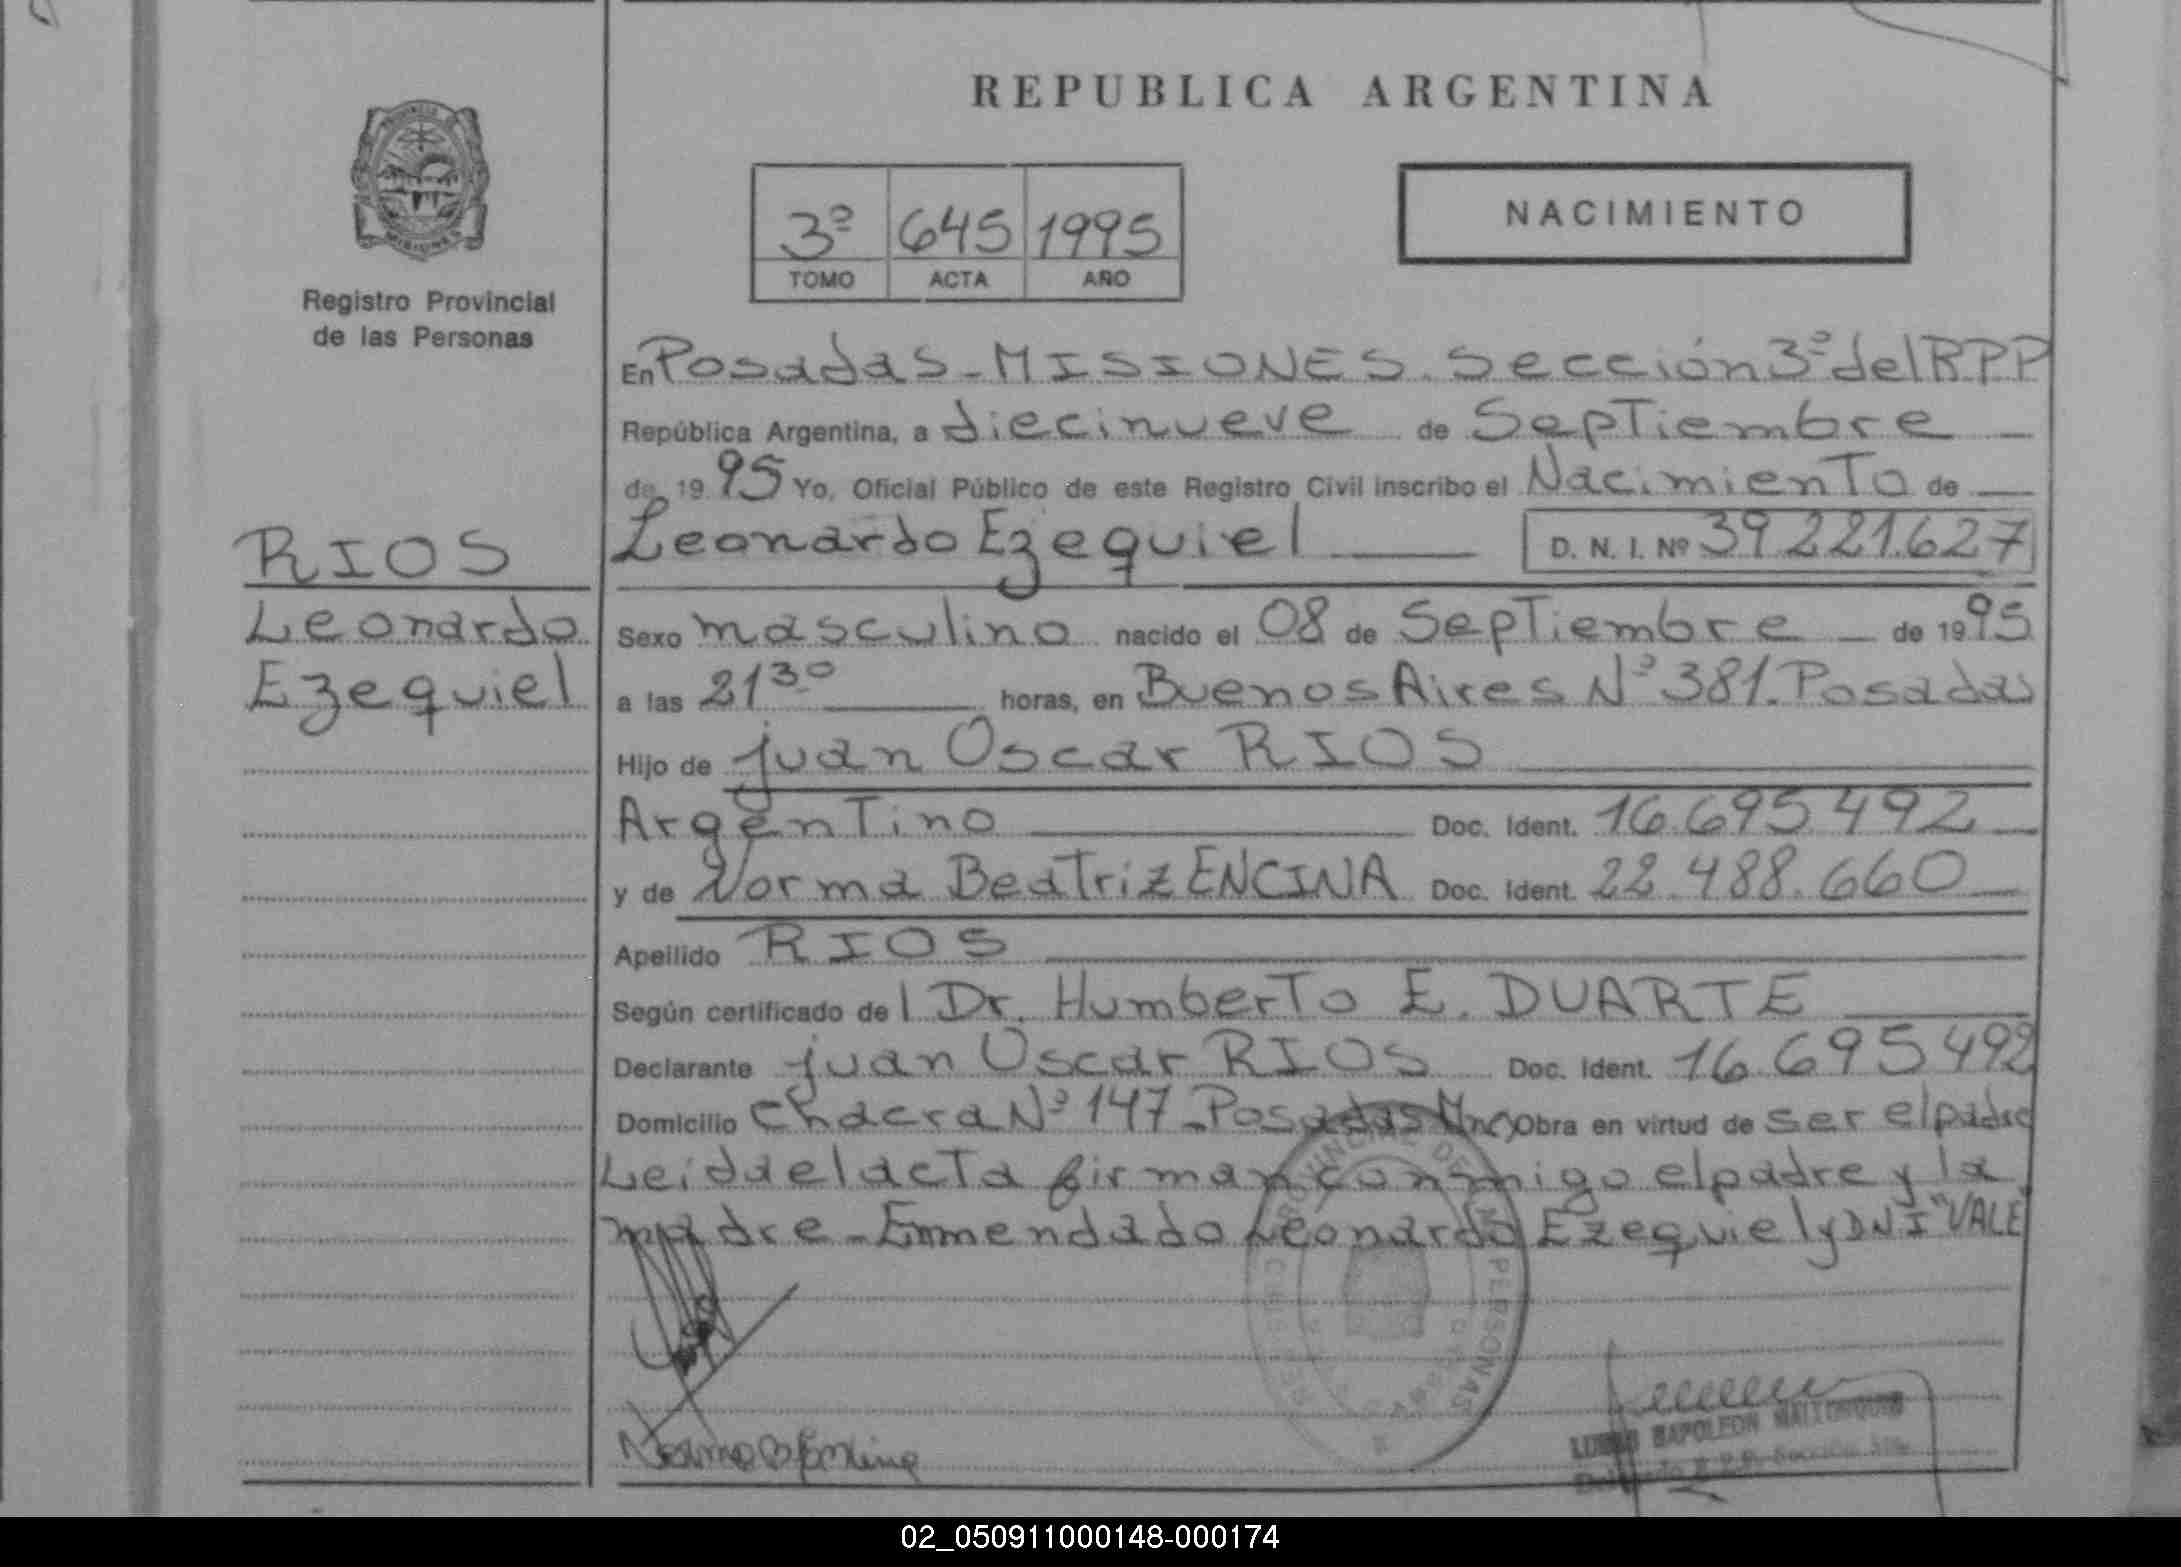 REPUBLICA ARGENTINA
NACIMIENTO
3º 645 1995
TOMO ACTA AÑO
Registro Provincial
de las Personas
En Posadas - MISIONES. Sección 3º del RPP
República Argentina, a diecinueve de Septiembre
de 1995 Yo, Oficial Público de este Registro Civil inscribo el Nacimiento de
RIOS
Leonardo Ezequiel D. N. I. Nº 39.221.627
Leonardo
Ezequiel
Sexo masculino nacido el 08 de Septiembre de 1995
a las 21 30 horas, en Buenos Aires Nº 381. Posadas
Hijo de Juan Oscar RIOS
Argentino Doc. Ident. 16.695.492
y de Norma Beatriz ENCINA Doc. Ident. 22.488.660
Apellido RIOS
Según certificado del Dr. Humberto E. DUARTE
Declarante Juan Oscar RIOS Doc. Ident. 16.695492
Domicilio Chacra Nº 147 - Posadas Obra en virtud de ser el padre
Leida el acta firman conmigo el padre y la
madre - Enmendado Leonardo Ezequiel y DNI "VALE
PERSONAS
NAPOLEON
02_050911000148-000174